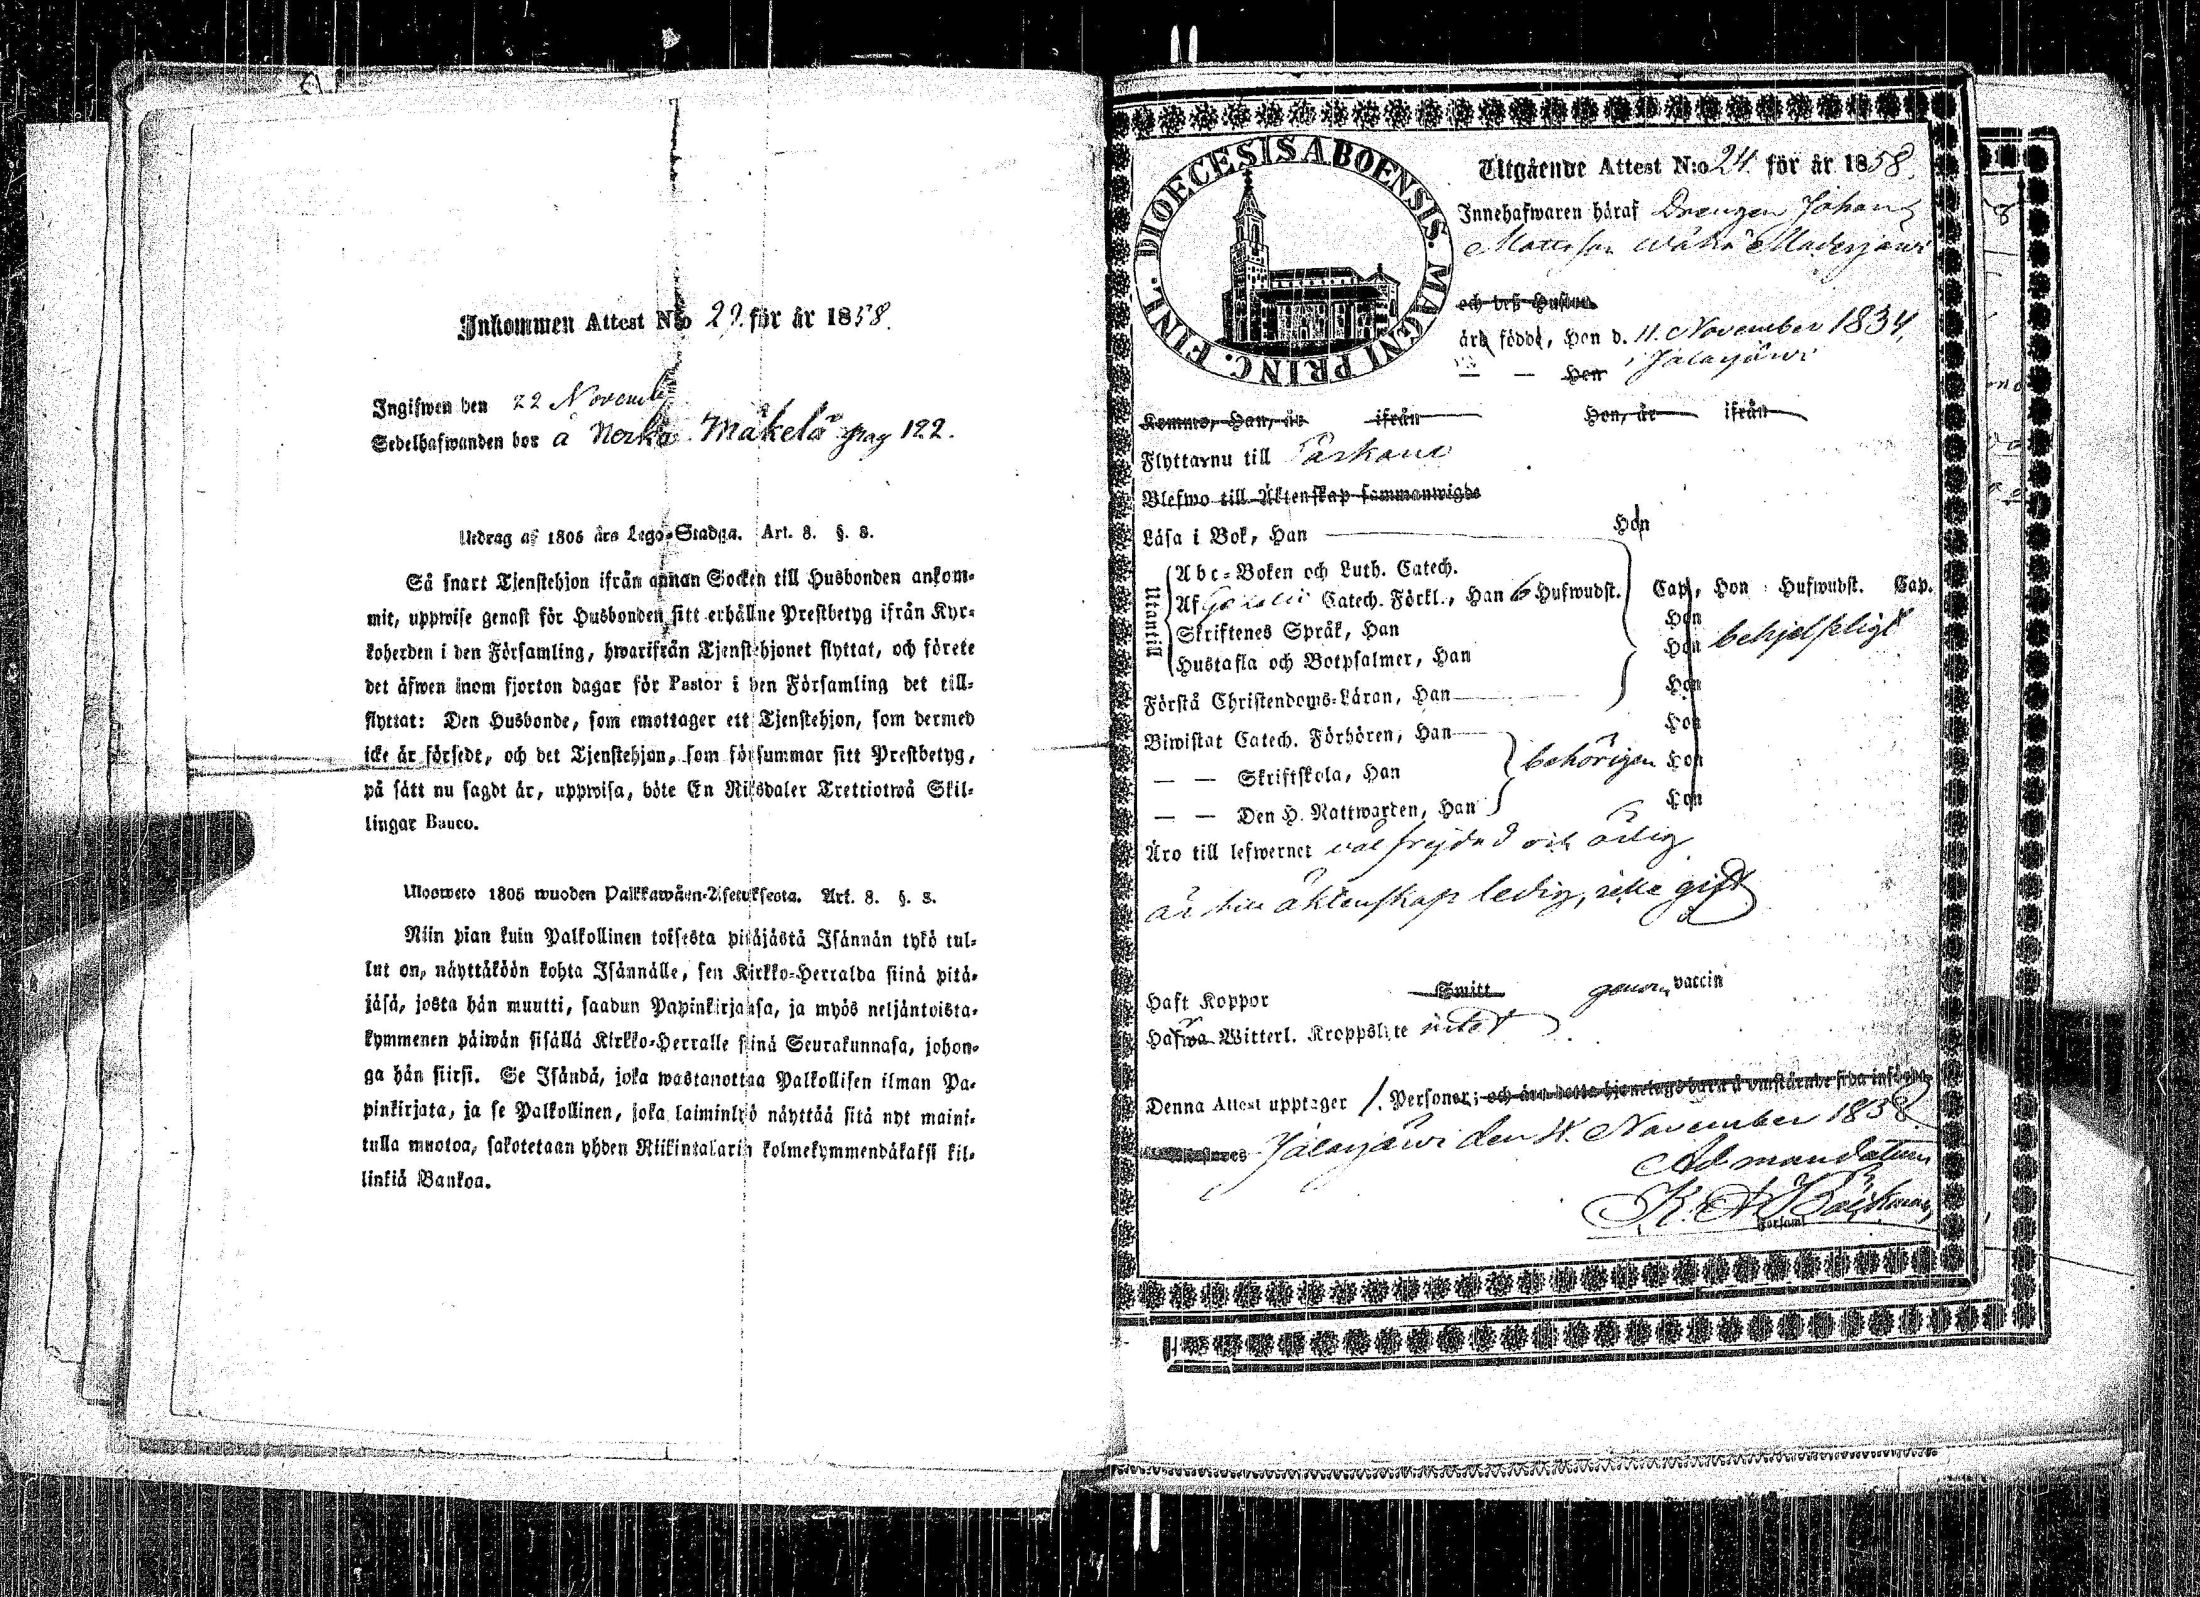 Inkommen Attest N:o 29. för år 1858.
Ingifwen den 22 Novemb
Sedelhafwanden bor å Nerkä Mäkelä pag 122.
Utdrag af 1805 års Lego-Stadga. Art. 8. §. 8.
Så snart Tjenstehjon ifrån annan Socken till Husbonden ankom-
mit, uppwise genast för Husbonden sitt erhållne Prestbetyg ifrån Kyr-
koherden i den Församling, hwarifrån Tjenstehjonet flyttat, och förete
det äfwen inom fjorton dagar för Pastor i den Församling det till-
flyttat: Den Husbonde, som emottager ett Tjenstehjon, som dermed
icke är försedt, och det Tjenstehjon, som försummar sitt Prestbetyg,
på sätt nu sagdt är, uppwisa, böte En Riksdaler Trettiotwå Skil-
lingar Banco.
Ulosweto 1805 wuoden Palkkawäen-Asetuksesta. Art. 8. §. 8.
Niin pian kuin Palkollinen toisesta pitäjästä Isännän tykö tul-
lut on, näyttäköön kohta Isännälle, sen Kirkko-Herralda siinä pitä-
jäsä, josta hän muutti, saadun Papinkirjansa, ja myös neljäntoista-
kymmenen päiwän sisällä Kirkko-Herralle siinä Seurakunnasa, johon-
ga hän siirsi. Se Isändä, joka wastanottaa Palkollisen ilman Pa-
pinkirjata, ja se Palkollinen, joka laiminlyö näyttää sitä nyt maini-
tulla muotoa, sakotetaan yhden Riikintalarin kolmekymmendäkaksi kil-
linkiä Bankoa.
DIOECESIS ABOENSIS. MAGNI PRINC. FINL.
Utgående Attest N:o 24. för år 1858.
Innehafwaren häraf Drengen Johan
Mattsson Wähä Madesjärwi
och dess Hustru
äro födde, Han d. 11. November 1834,
— — Hon i Jalasjärwi
Komne, Han, år ifrån Hon, år ifrån
Flyttar nu till Parkano
Blefwo till Äktenskap sammanwigde
Läsa i Bok, Han Hon
Utantill
Abc-Boken och Luth. Catech.
Af Catech. Förkl., Han 6 Hufwudst. Cap., Hon Hufwudst. Cap.
Skriftenes Språk, Han Hon
Hustafla och Botpsalmer, Han Hon behjelpeligt
Förstå Christendoms-Läran, Han Hon
Biwistat Catech. Förhören, Han Hon
— — Skriftskola, Han behörigen Hon
— — Den H. Nattwarden, Han Hon
Äro till lefwernet wäl frejdad och ärlig
är till äktenskap ledig, icke gift
Haft Koppor Smitt genom vaccin
Hafwa Witterl. Kroppslyte intet
Denna Attest upptager 1. Personer; och äro detta hjonelags barn å omstående sida införda
Jalasjärwi den 11. November 1858.
Ad mandatum
K. A. Bäckman
Församl